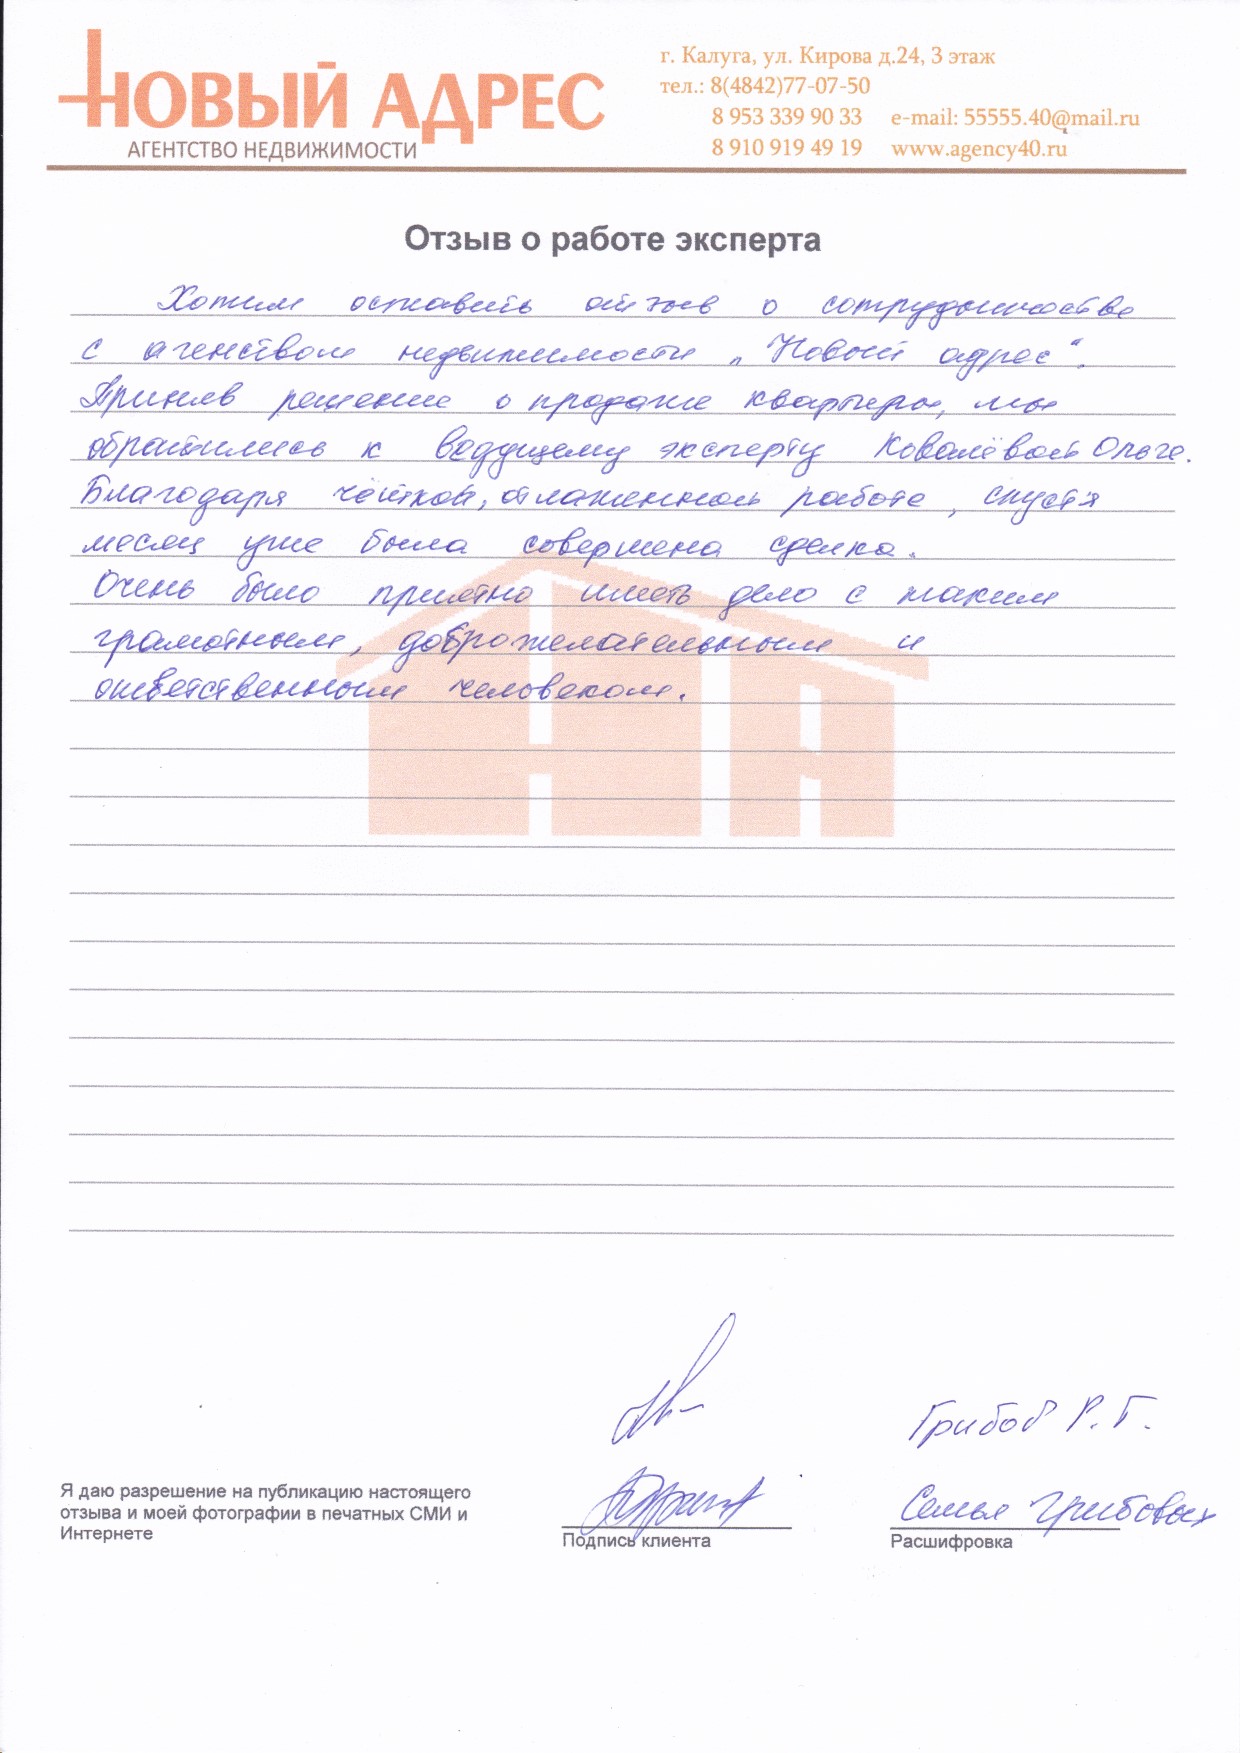 НОВЫЙ АДРЕС
АГЕНТСТВО НЕДВИЖИМОСТИ
г. Калуга, ул. Кирова д.24, 3 этаж
тел.: 8(4842)77-07-50
8 953 339 90 33 e-mail: 55555.40@mail.ru
8 910 919 49 19 www.agency40.ru
Отзыв о работе эксперта
Хотим оставить отзыв о сотрудничестве
с агенством недвижимости „Новый адрес“.
Приняв решение о продаже квартиры, мы
обратились к ведущему эксперту Ковалёвой Ольге.
Благодаря чёткой, отлаженной работе, спустя
месяц уже была совершена сделка.
Очень было приятно иметь дело с таким
грамотным, доброжелательным и
ответственным человеком.
НА
Грибов Р. Г.
Я даю разрешение на публикацию настоящего
отзыва и моей фотографии в печатных СМИ и
Интернете
Семья Грибовых
Подпись клиента
Расшифровка